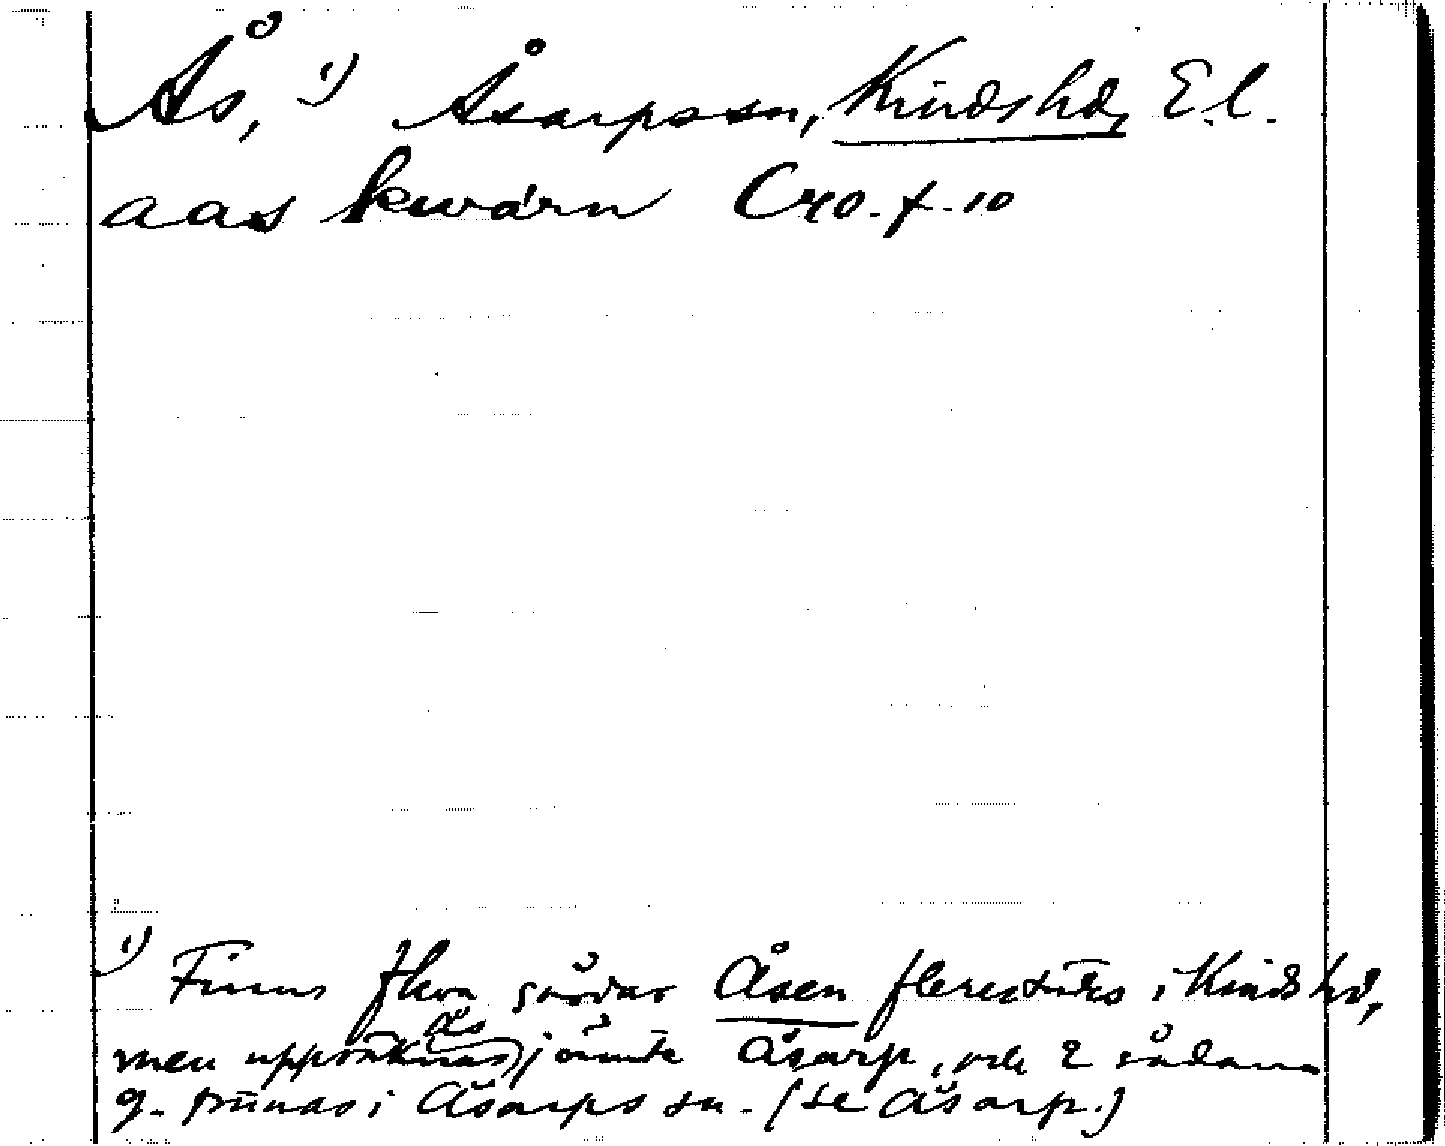 Ås, 1) Åsarps sn, Kinds hd, E.l.
aas kwärn C40. f. 10
1) Finns flera gårdar Åsen flerestädes i Kinds hd,
men uppräknas jämte Åsarp, och 2 sådana
g. finnas i Åsarps sn. (se Åsarp.)